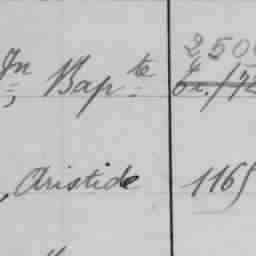 Jn Bapte 250
, Aristide 1165